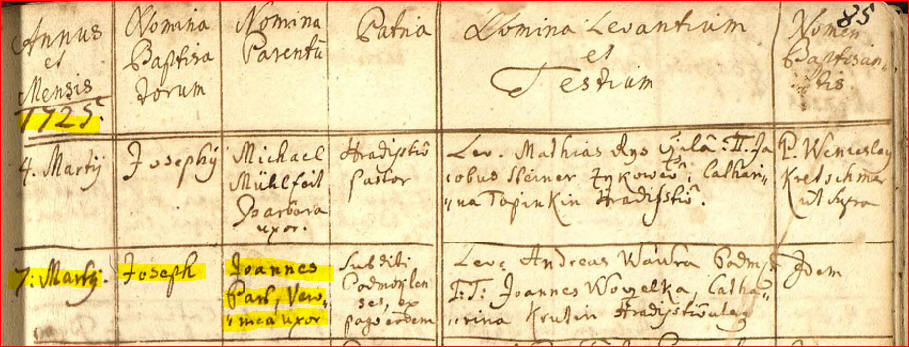 85
Annus
et
Mensis
1725.
Nomina
Baptisa
torum
Nomina
Parentū
Patria
Nomina Levantium
et
Testium
Nomen
Baptisan-
tis.
4. Martij
Josephq
Michael
Mühlfeit
Barbora
uxor.
Hradisstiō
pastor
Lev. Mathias Rys
obus Steiner
i Cathari-
"na Hradisstiō.
P. Wenceslaq
Kretschmar
ut supra
7. Martij.
Joseph
Joannes
Parb, Vero-
"mca uxor
Subditi
Podmoklen
ses, ex
pago eodem
Lev. Andreas Wawra
T.T. Joannes Woyelka, Catha-
"rina Krutin
Idem